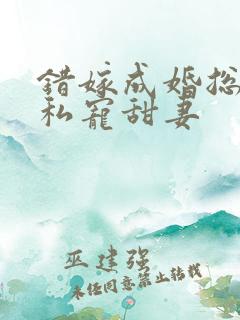 错嫁成婚总
私宠甜妻
巫建强
未经同意禁止转载